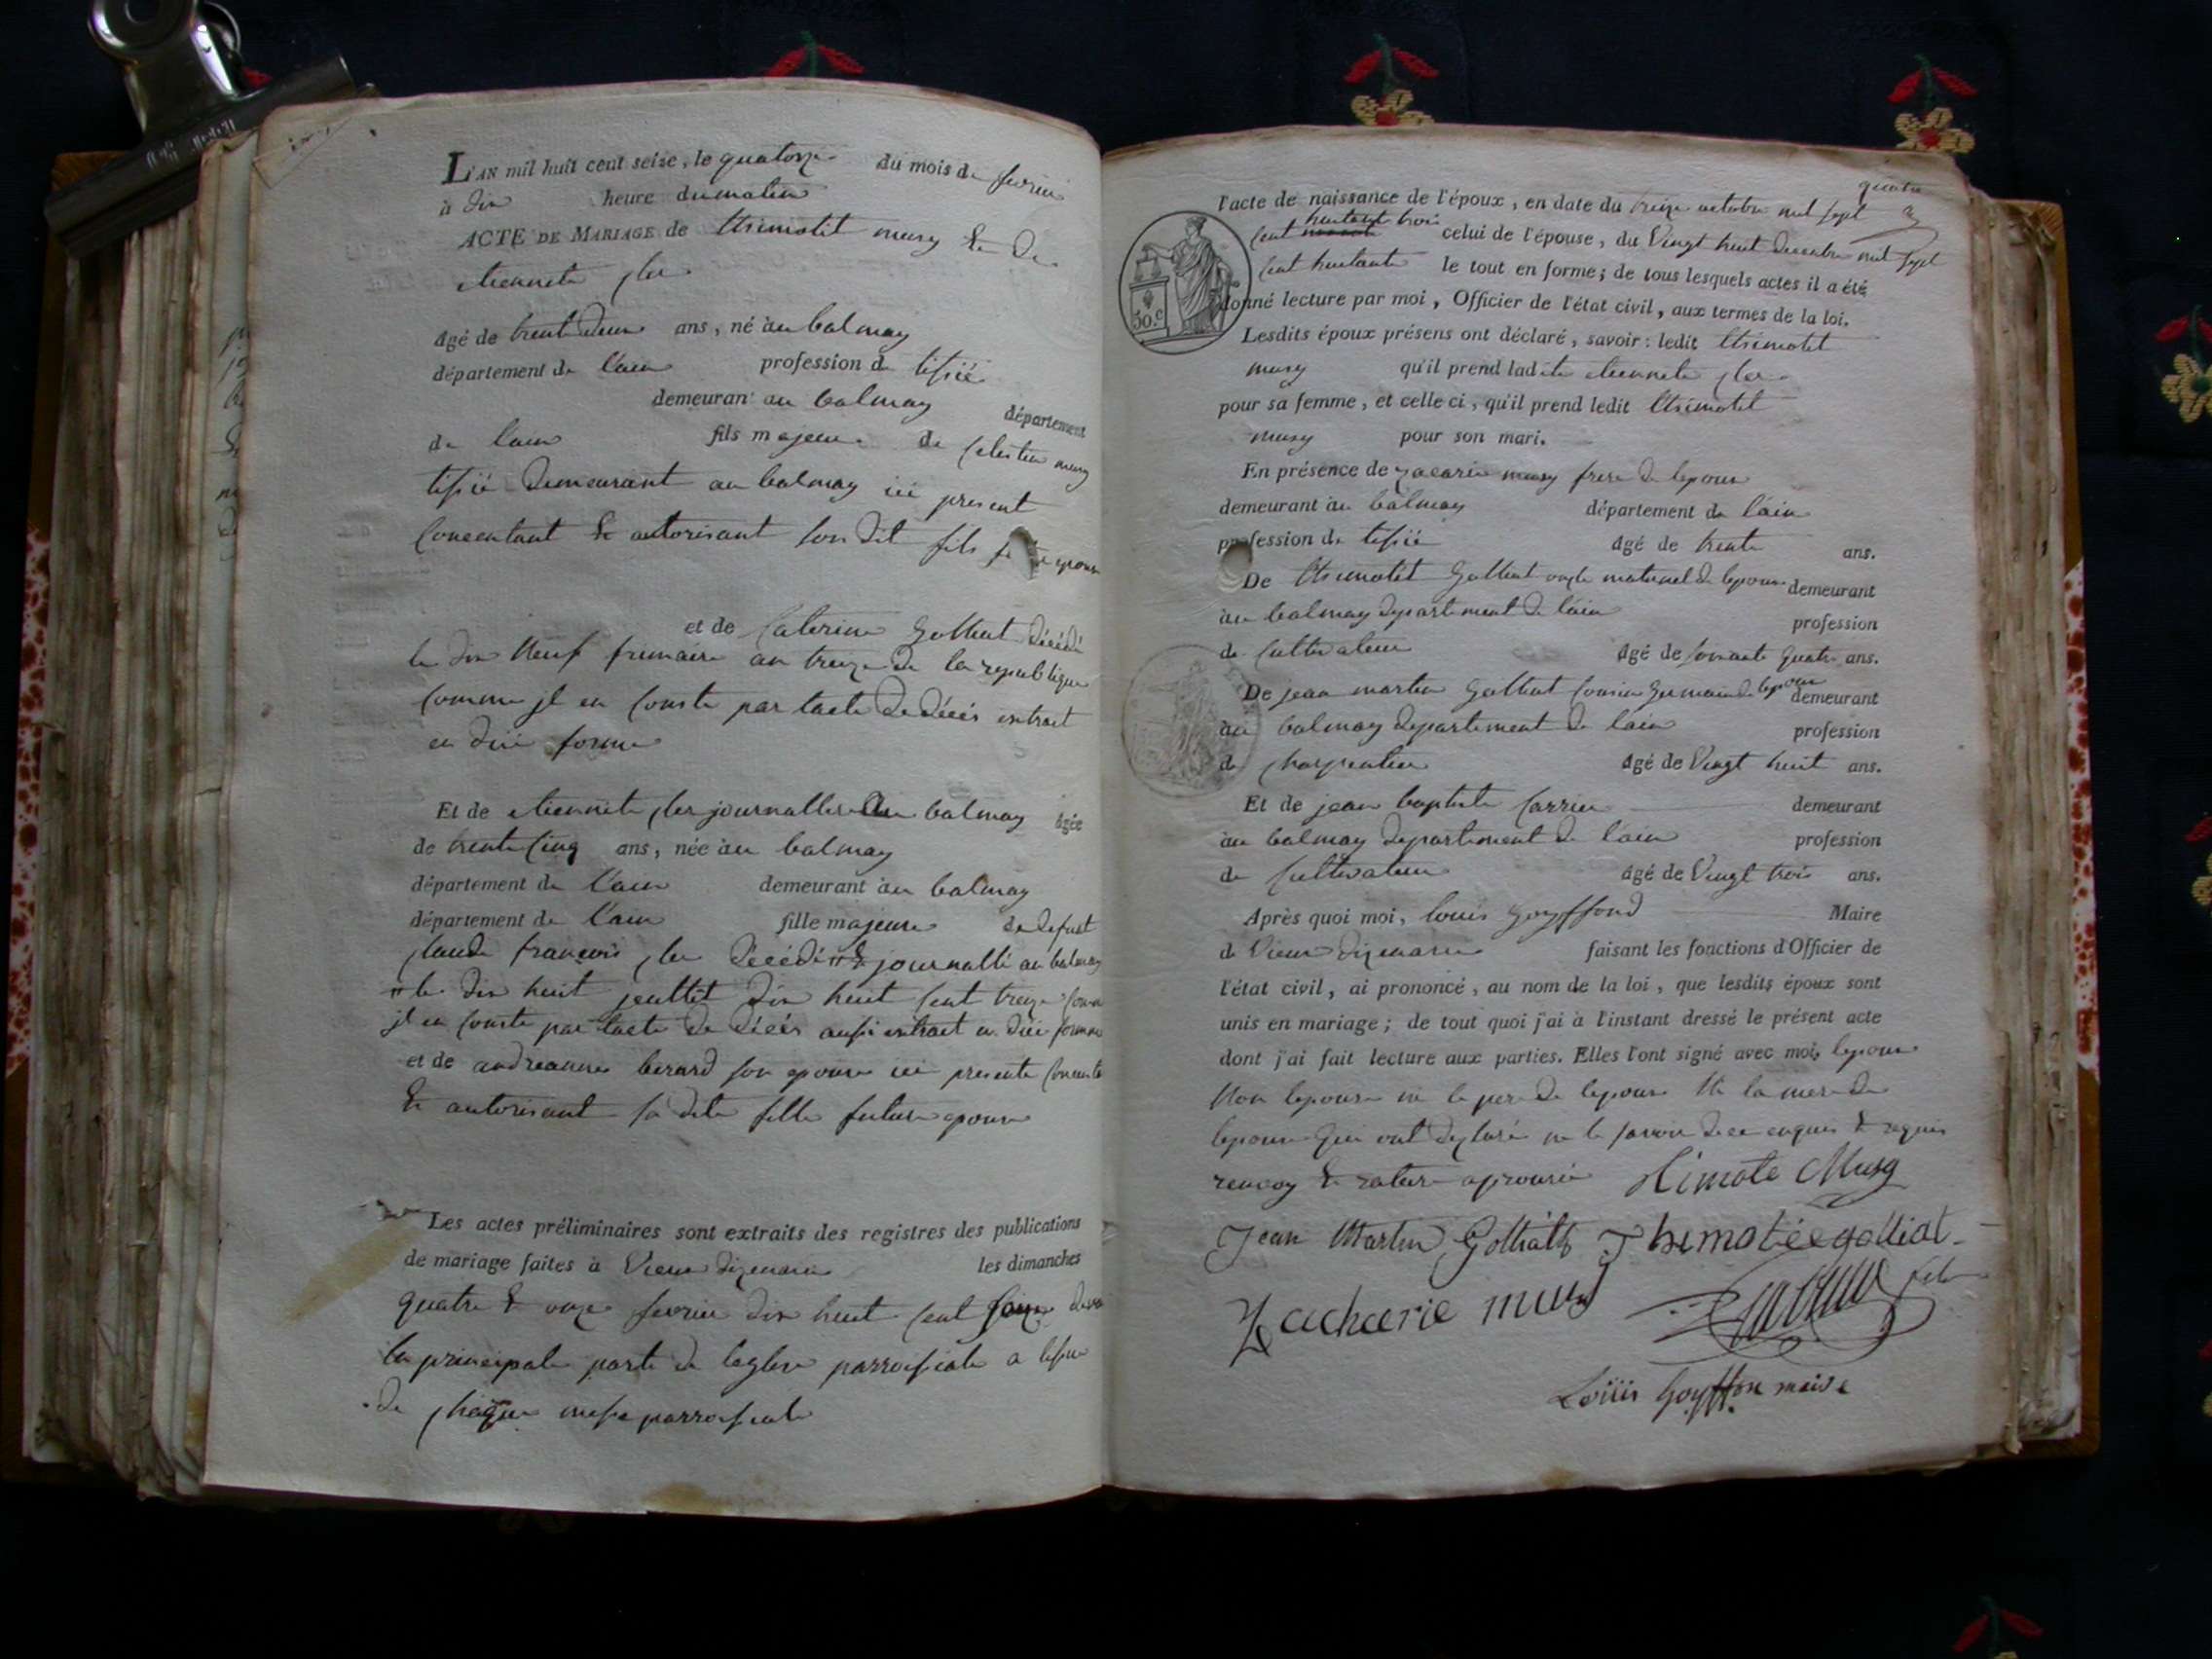 L'AN mil huit cent seize, le quatorze du mois de fevrier
à dix heure du matin
ACTE DE MARIAGE de thimotét musy & de
etiennete
âgé de trente deux ans, né au balmay
département de l'ain profession de tissié
demeurant au balmay département
de lain fils majeur de celestin musy
tissié demeurant au balmay ici present
concentant & autorisant son dit fils
et de Caterine Golliat décédé
le dix Neuf frimaire an treize de la republique
comme jl en conste par lacte de décés extrait
en düe forme
Et de etiennete journalliere au balmay âgée
de trente cinq ans, née au balmay
département de l'ain demeurant au balmay
département de l'ain fille majeure de defunt
claude françois décédé & journallié au balmay
le dix huit jeuliet dix huit cent treize
jl en conste par lacte de décés aussi extrait en düe forme
et de andreanne berard son epouse ici presente
& autorisant sa dite fille future epouse
Les actes préliminaires sont extraits des registres des publications
de mariage faites à Vieux dizenave les dimanches
quatre & onze fevrier dix huit cent
la principale porte de leglise parroissiale a lissue
de chaque messe parroissiale
l'acte de naissance de l'époux, en date du treize octobre mil sept
quatre
cent huitante trois celui de l'épouse, du Vingt huit decembre mil sept
cent huitante le tout en forme; de tous lesquels actes il a été
donné lecture par moi, Officier de l'état civil, aux termes de la loi.
50.c
Lesdits époux présens ont déclaré, savoir: ledit thimotét
musy qu'il prend ladite etiennete
pour sa femme, et celle ci, qu'il prend ledit thimotét
musy pour son mari.
En présence de zacarie musy frere de lepoux
demeurant au balmay département de l'ain
profession de tissié âgé de trente ans.
De thimotét Golliat oncle maternel de lepoux demeurant
au balmay departement de l'ain profession
de cultivateur âgé de soixante quatre ans.
De jean martin Golliat cousin Germain de lepoux demeurant
au balmay departement de lain profession
de charpentier âgé de Vingt huit ans.
Et de jean baptiste Carrier demeurant
au balmay departement de l'ain profession
de Cultivateur âgé de Vingt trois ans.
Après quoi moi, louis Goyffond Maire
de Vieux dizenave faisant les fonctions d'Officier de
l'état civil, ai prononcé, au nom de la loi, que lesdits époux sont
unis en mariage; de tout quoi j'ai à l'instant dressé le présent acte
dont j'ai fait lecture aux parties. Elles l'ont signé avec moi, lepoux
Non lepouse ni le pere de lepoux Ni la mere de
lepouse qui ont declaré ne le savoir de ce enquis & requis
renvoy & rature aprouvée thimote Musy
Jean Martin Golliat Thimotée golliat
Zacharie musy
Loüis Goyffon maire